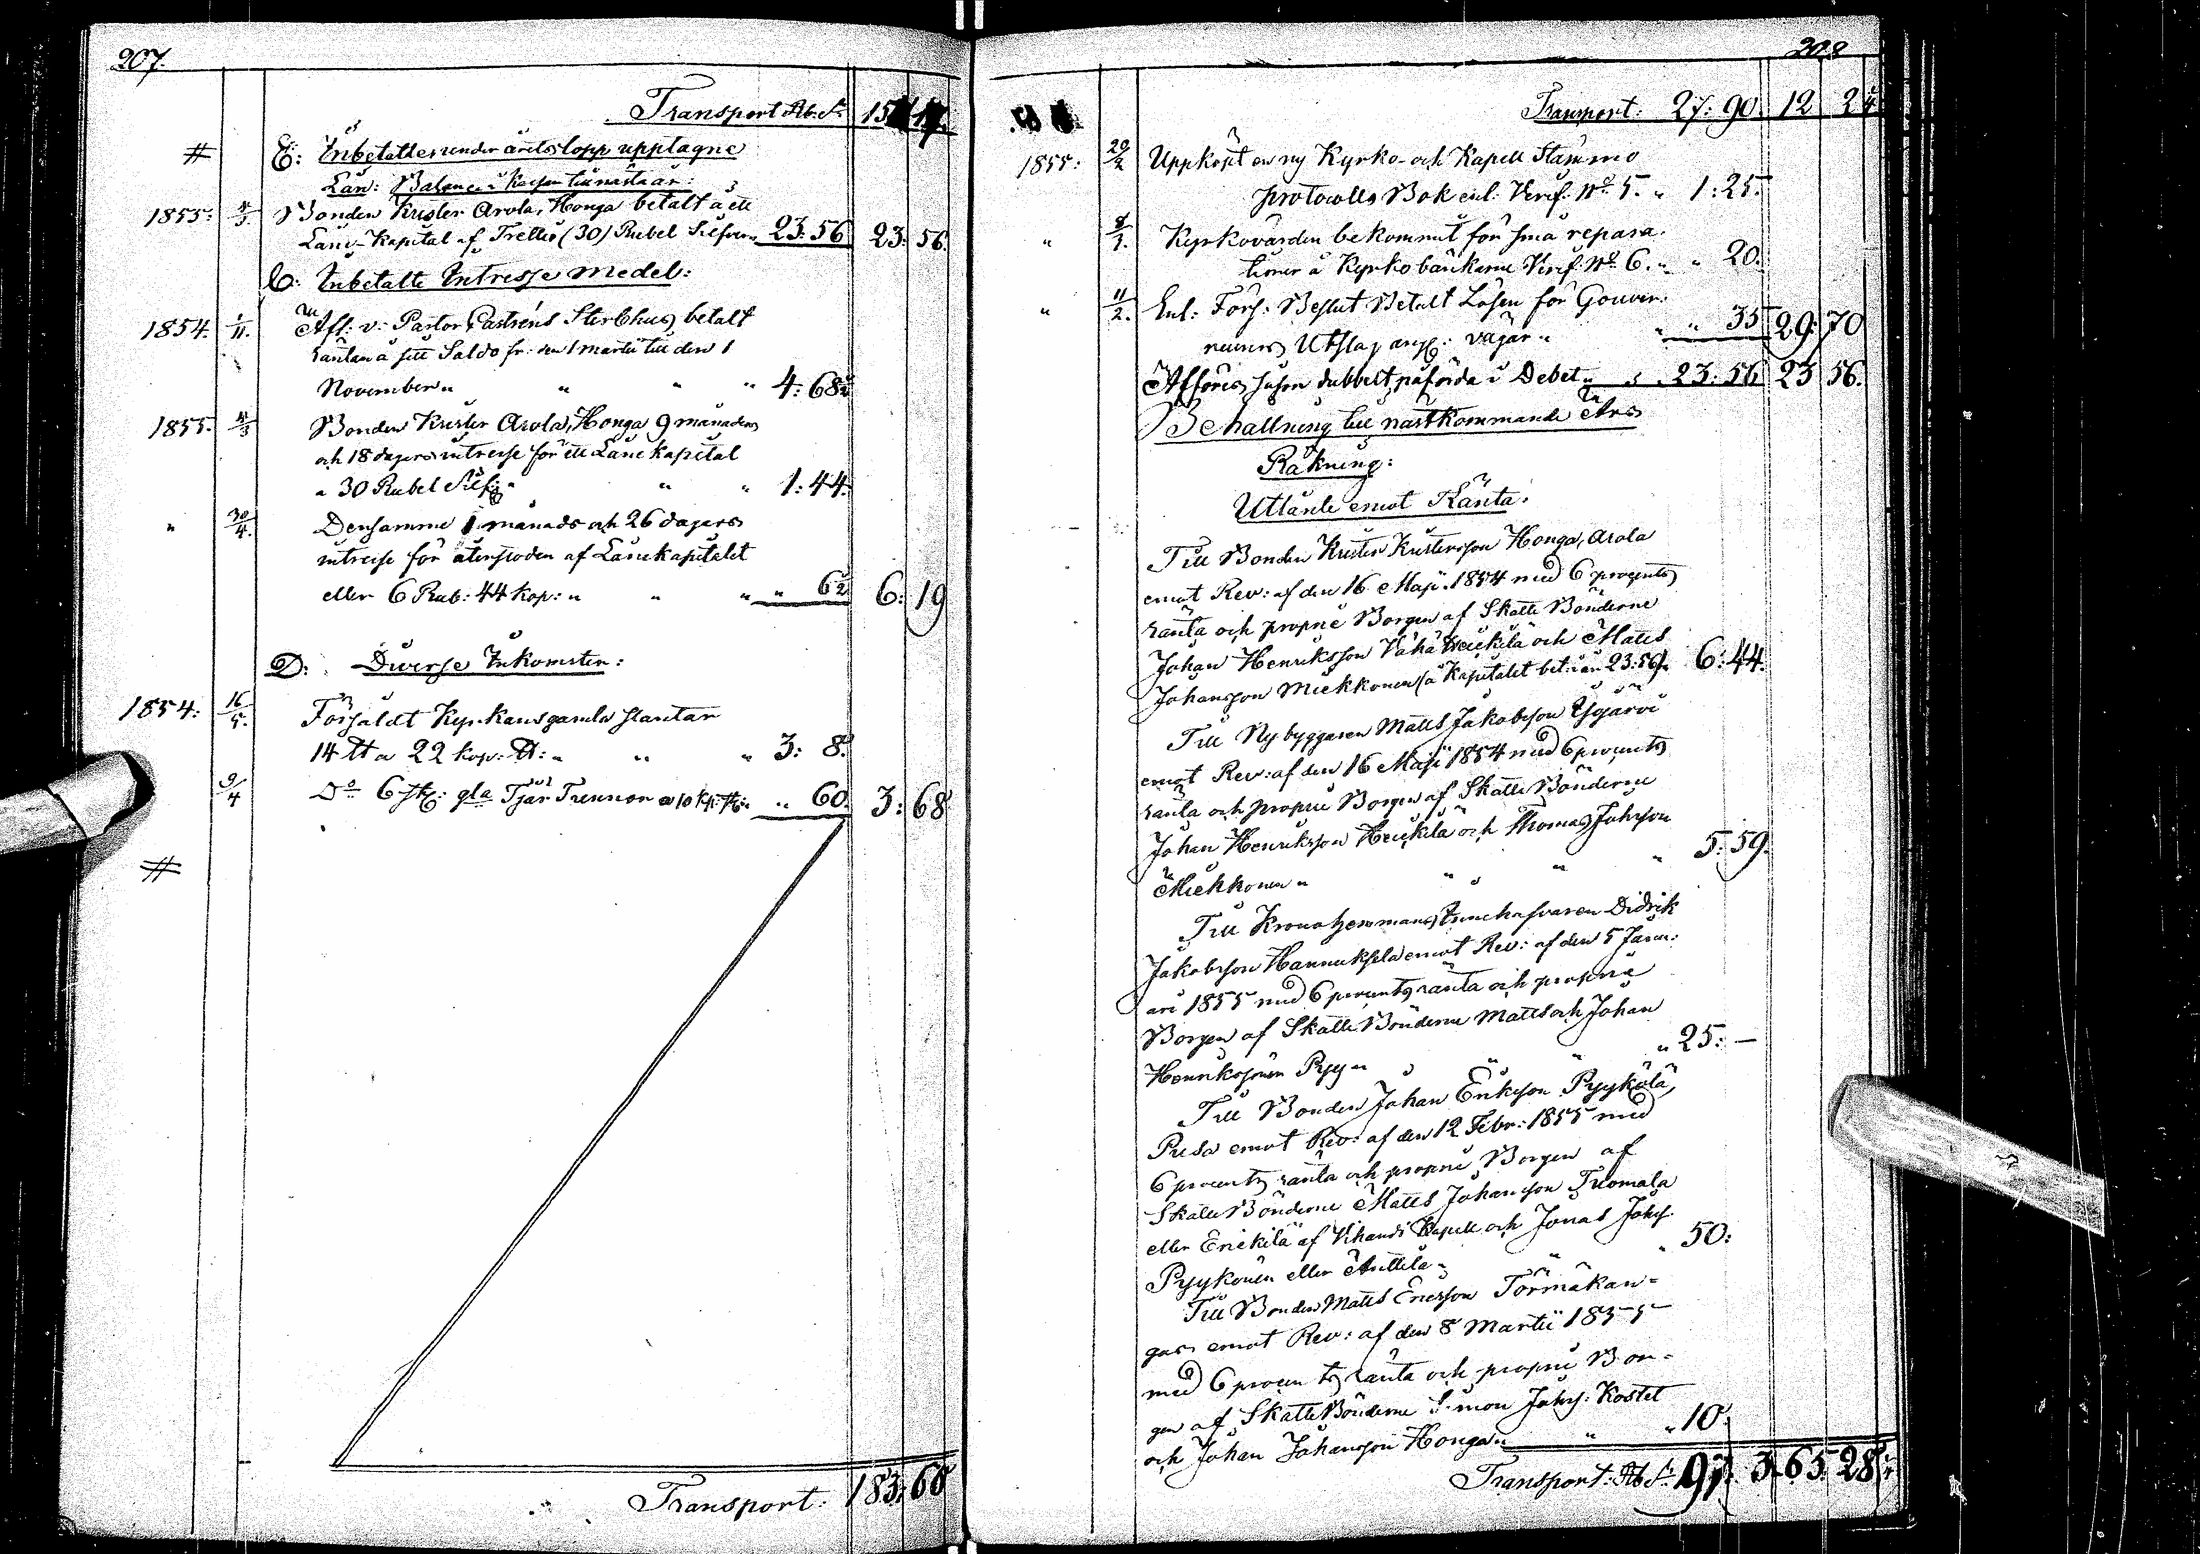 207.
Transport Rb. Sr
E: Inbetalte under årets lopp upptagne
Lån: Balance i Kassan till nästa år:
1855: 4/3. Bonden Krister Arola, Honga betalt å ett
Låne-Kapital af Trettio (30) Rubel Silfver 23:56 23:56.
C: Inbetalte Intresse medel:
1854. 1/11. Afl: v: Pastor Castréns Sterbhus betalt
räntan å sitt Saldo fr: den 1 Martii till den 1
November " " " " 4:68½
1855. 4/3 Bonden Krister Arola, Honga 9 månaders
och 18 dagars intresse för ett Lånekapital
a 30 Rubel Silf: " " " 1:44.
" 30/4. Densamme 1 månads och 26 dagars
intresse för återstoden af Lånekapitalet
eller 6 Rub: 44 Kop: " " " " 6½ 6:19
D: Diverse Inkomster:
1854: 16/5. Försåldt Kyrkans gamla
14 ℔ a 22 kop: ℔: " " " 3: 8.
9/4 Do 6 st: gla Tjär Trennor a 10 Kp: " " 60. 3:68
Transport: 183:60
208
Transport: 27:90. 12 24
1855: 20/2 Uppköpt en ny Kyrko- och Kapell Stämmo
protocolls Bok enl: Verif: No 5. " 1:25.
" 8/1. Kyrkovärden bekommit för små repara-
tioner å Kyrko bänkarne Verif: No 6. " " 20.
" 11/2. Enl: Förs: Beslut Betalt Lösen för Gouver-
neurens Utslag ang: vägar " " " 35 29:70
Afföres såsom dubbelt påförda i Debet " " 23:56 23 56.
Behållning till nästkommande Års
Räkning:
Utlånte emot Ränta.
Till Bonden Krister Kristersson Honga, Arola
emot Rev: af den 16 Maji 1854 med 6 procents
ränta och proprie Borgen af Skatte Bönderne
Johan Henriksson Vähä Heickilä och Matts
Johansson Miekkonen (å Kapitalet bet: är 23:56) 6:44.
Till Nybyggaren Matts Jakobsson Isojärvi
emot Rev: af den 16 Maji 1854 med 6 procents
ränta och proprie Borgen af Skatte Bönderne
Johan Henriksson Heickilä och Thomas Johsson
Miekkonen " " " " " 5:59.
Till Kronohemmans Innehafvaren Didrik
Jakobsson Hannuksela emot Rev: af den 5 Janu-
ari 1855 med 6 procents ränta och proprie
Borgen af Skatte Bönderne Matts och Johan
Henrikssöner Pyy " " " " " 25:—
Till Bonden Johan Eriksson Pyykölä,
Pusa emot Rev: af den 12 Febr: 1855 med
6 procents ränta och proprie Borgen af
Skatte Bönderne Matts Johansson Tuomala
eller Erickilä af Vihandi Kapell och Jonas Johs:
Pyykönen eller Anttila " " " 50:
Till Bonden Matts Ericsson Törmäkan-
gas emot Rev: af den 8 Martii 1855
med 6 procents ränta och proprie Bor-
gen af Skatte Bönderne Simon Johs: Kostet
och Johan Johansson Honga " " " 10:
Transport: Rb Sr 97. 3. 65. 28